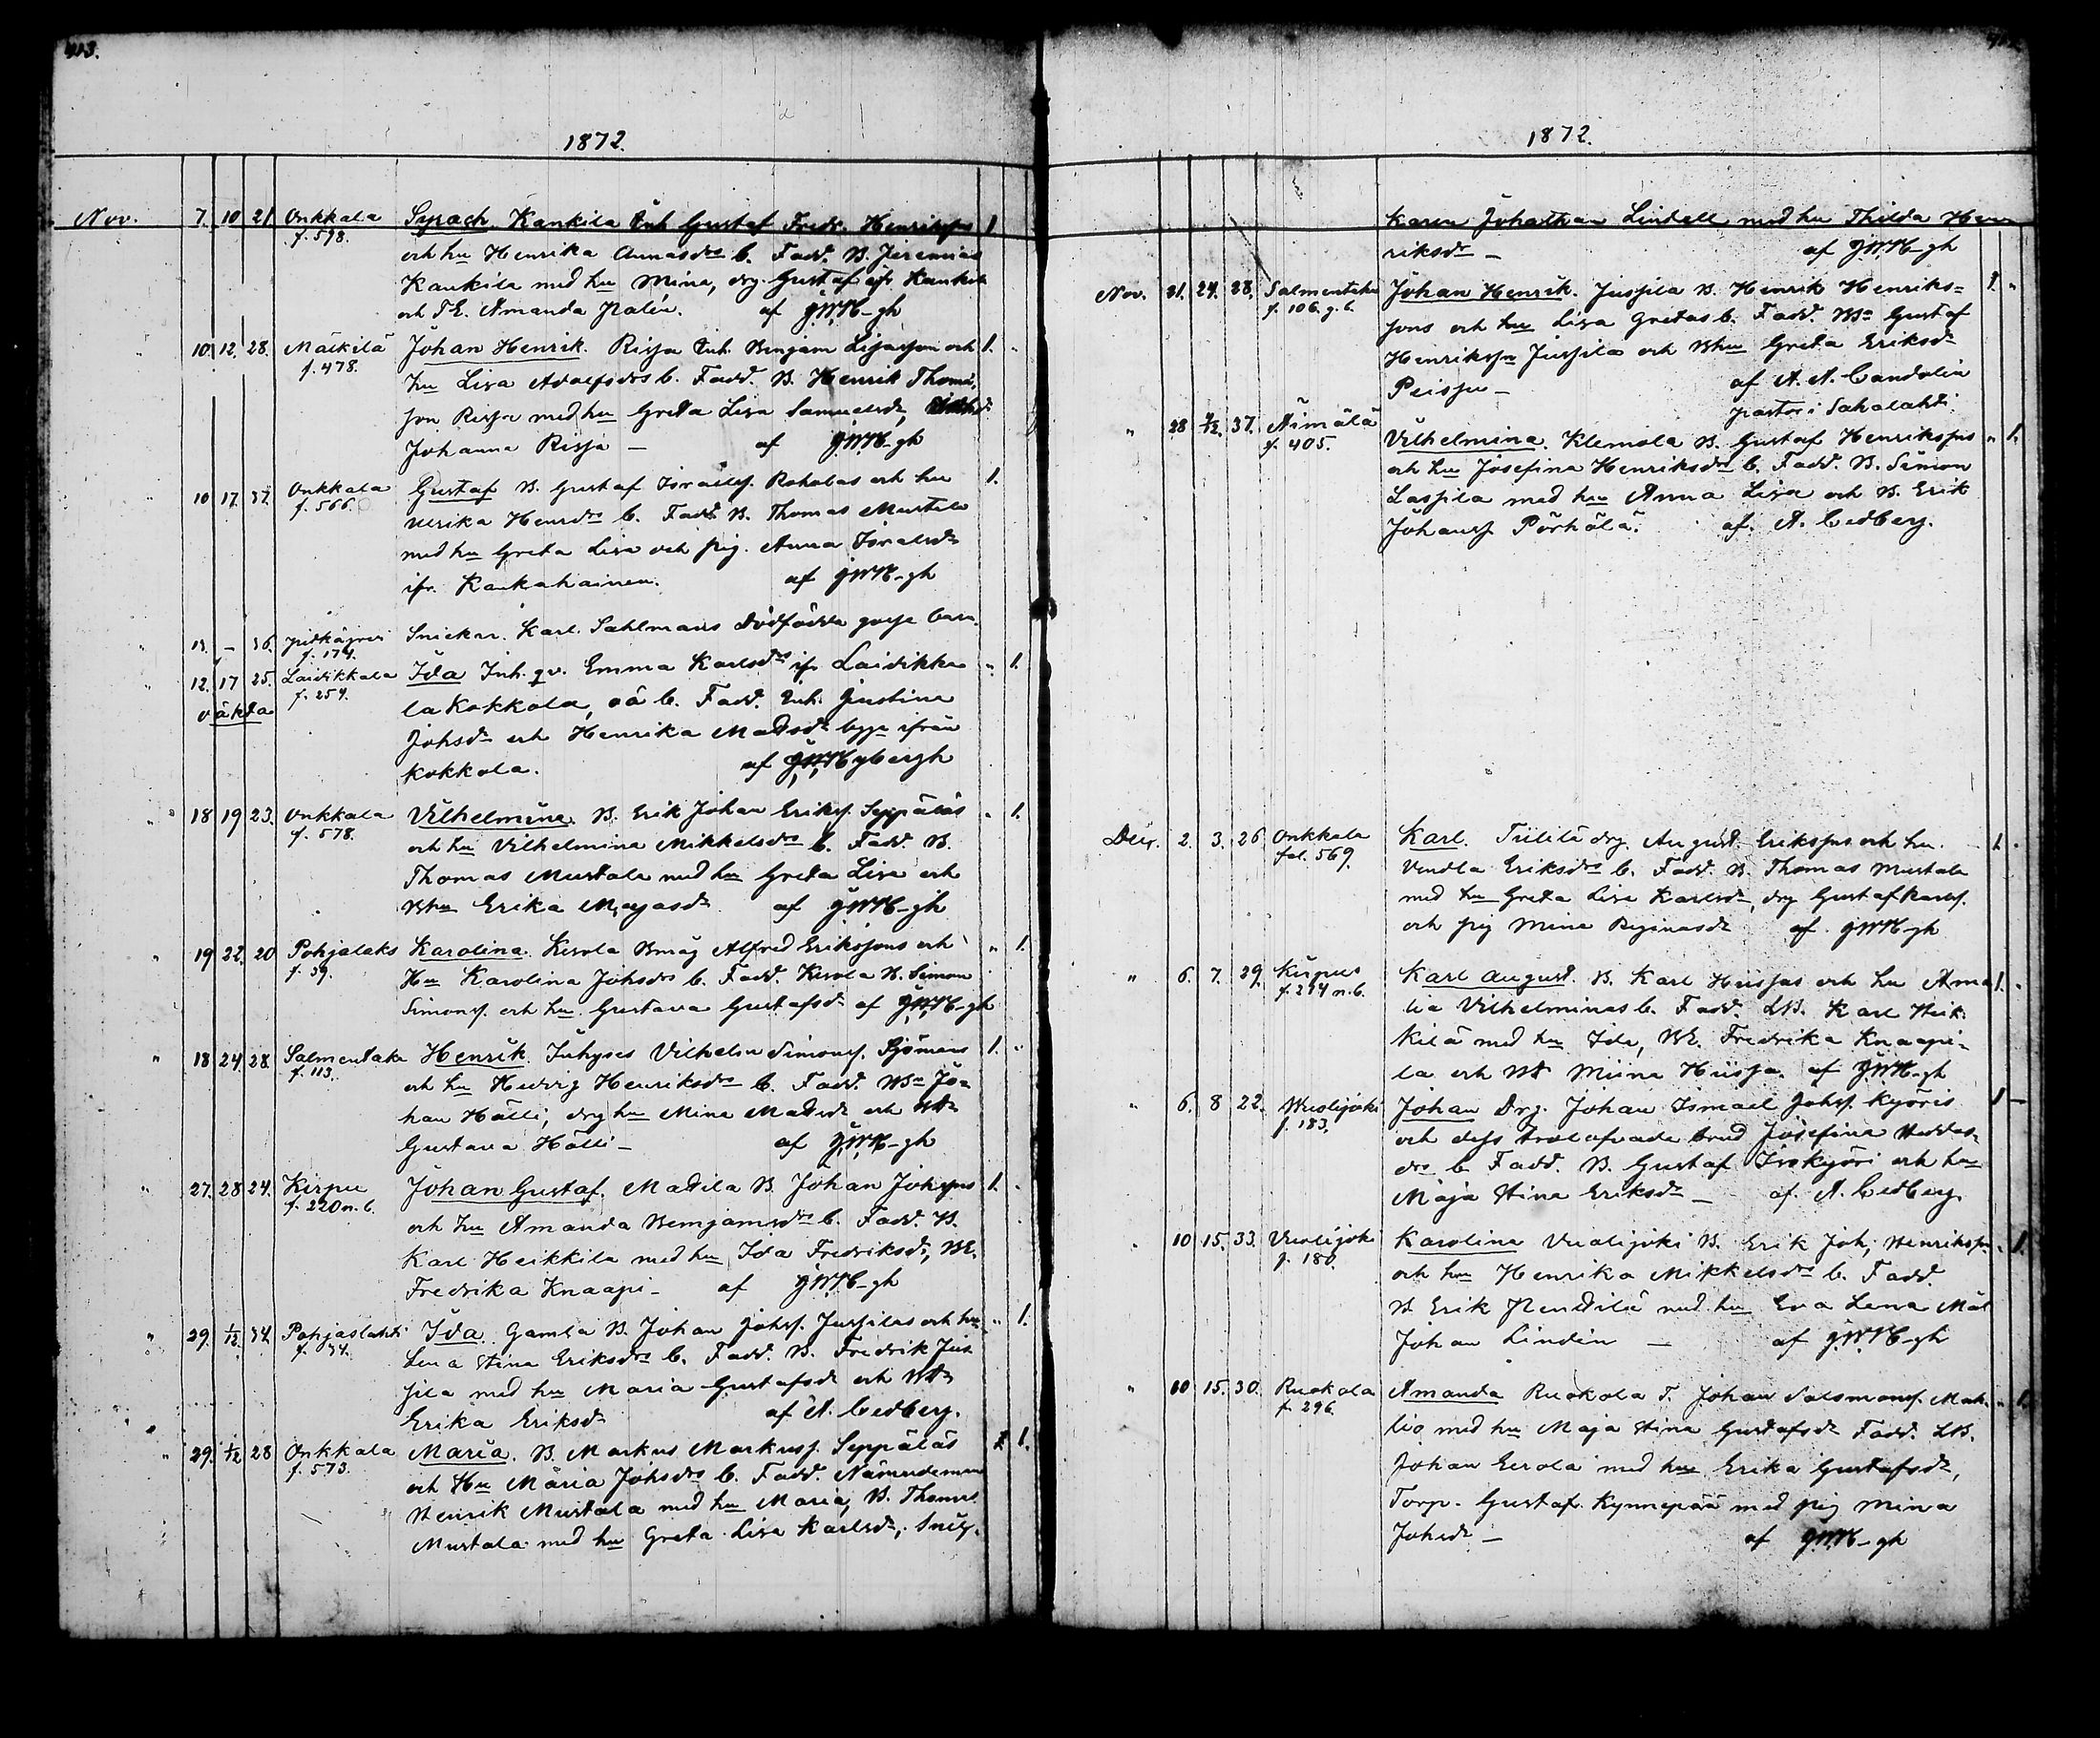 413.
1872.
Nov. 7. 10 21 Onkkala Syrach. Kankila Inh Gustaf Fredr. Henrikssns 1
f. 598. och hu Henrika Annasdrs b. Fadd. B. Jeremias
Kankila med hu Mina, drg. Gustaf ifr Kankila
och TE. Amanda Palén. af GWH-gh
10. 12. 28. Mälkilä Johan Henrik. Rissa Inh. Benjam Lisasson och 1.
f. 478. hu Lisa Adolfsdrs b. Fadd. B. Henrik Thomas
son Rissa med hu Greta Lisa Samuelsdr,
Johanna Rissa – af GWH-gh
10 17. 37. Onkkala Gustaf B. Gustaf Israelss. Roholas och hu 1.
f. 566. Ulrika Henrdrs b. Fadd. B. Thomas Mustala
med hu Greta Lisa och pig. Anna Israelsdr
ifr. Kankahainen. af GWH-gh
13. – 36. Snickar. Karl. Sahlmans dödfödda gosse barn.
f. 174.
12. 17 25. Laidikkala Ida Inh. qv. Emma Karlsdrs ifr Laidikka „ 1.
f. 254. la Kokkola, oä b. Fadd. Inh. Justina
väkta Johsdr och Henrika Matsdr ifrån
Kokkola. af GWHgbergh
18 19 23. Onkkala Vilhelmina. B. Erik Johan Erikss. Seppäläs „ 1.
f. 578. och hu Vilhelmina Mikkelsdrs b. Fadd. B.
Thomas Mustala med hu Greta Lisa och
Bhu Erika Majasdr af GWH-gh
„ 19 22. 20 Pohjalaks Karolina. Kerola Bmåg Alfred Erikssons och „ 1.
f. 39. Hu Karolina Johsdrs b. Fadd. Kerola B. Simon
Simonss. och hu Gustava Gustafsdr af GWH-gh
„ 18 24 28. Salmentaka Henrik. Inhyses Vilhelm Simonss. Sjömans 1. „
f. 113. och hu Hedvig Henriksdrs b. Fadd. Bsn Jo=
han Hölli, drg hu Mina Matsdr och Bdr
Gustava Hölli – af GWH-gh
„ 27. 28 24. Kirpu Johan Gustaf. Matila B. Johan Johssns 1.
f. 220 n. b. och hu Amanda Benjamsdrs b. Fadd. B.
Karl Heikkila med hu Ida Fredriksdr, BE.
Fredrika Knaapi – af GWH-gh
„ 29. 1/12. 34. Pohjaslahti Ida. Gamla B. Johan Johss. Jussilas och hu „ 1.
f. 34. Lena Stina Eriksdrs b. Fadd. B. Fredrik Jus
sila med hu Maria Gustafsdr och Bdr
Erika Eriksdr af A. Cedberg.
„ 29. 1/12 28 Onkkala Maria. B. Markus Markuss. Seppäläs 1.
f. 573. och Hu Maria Johsdrs b. Fadd. Nämndeman
Henrik Mustala med hu Maria, B. Thomas
Mustala med hu Greta Lisa Karlsdr,
1872.
Karen Johathan Lindell med hu Thilda Hen
riksdr – af GWH-gh
Nov. 21. 24. 28. Salmentaka Johan Henrik. Jussila B. Henrik Henriks= 1. „
f. 106. g. b. sons och hu Lisa Gretas b. Fadd. Bsn Gustaf
Henrikssn Jussila och Bhu Greta Eriksdr
Peissu – af A. A. Candolin
pastor i Sahalahti.
„ 28 1/12. 37. Äimälä Vilhelmina. Klemola B. Gustaf Henrikssns „ 1.
f. 405. och hu Josefina Henriksdrs b. Fadd. B. Simon
Lassila med hu Anna Lisa och B. Erik
Johanss. Pörhölä. af. A. Cedberg.
Decr. 2. 3. 26 Onkkala Karl. Tiililä drg. August. Erikssns och hu. 1.
fol. 569. Vendla Eriksdrs b. Fadd. B. Thomas Mustala
med hu Greta Lisa Karlsdr, drg Gustaf Karlss.
och pig Mina Reginasdr af. GWH-gh
„ 6. 7. 29. Kirpus Karl August. B. Karl Hiissas och hu Ama 1.
f. 214 n. b. lia Vilhelminas b. Fadd. LB. Karl Heik
kilä med hu Ida, BE. Fredrika Knaapi-
la och Bd Miina Hiissa. af GWH-gh
„ 6. 8 22. Vuolijoki Johan Drg. Johan Ismael Johss. Kyöris 1 –
f. 183. och dess trolofvade brud Josefina Heddas-
drs b. Fadd. B. Gustaf Isokyöri och hu
Maja Stina Eriksdr – af. A. Cedberg.
„ 10 15. 33. Vuolijoki Karolina Vuolijoki B. Erik Joh, Henrikssn „ 1.
f. 180. och hu Henrika Mikkelsdrs b. Fadd.
B. Erik Penttilä med hu Eva Lena Mål
Johan Lindén – af GWH-gh
„ 10 15. 30. Ruokola Amanda Ruokola T. Johan Salomonss. Mah- „ 1.
f. 296. lio med hu Maja Stina Gustafsdr Fadd. LB.
Johan Eerola med hu Erika Gustafsdr,
Torp. Gustaf. Kynnepää med pig Mina
Johsdr – af GWH-gh